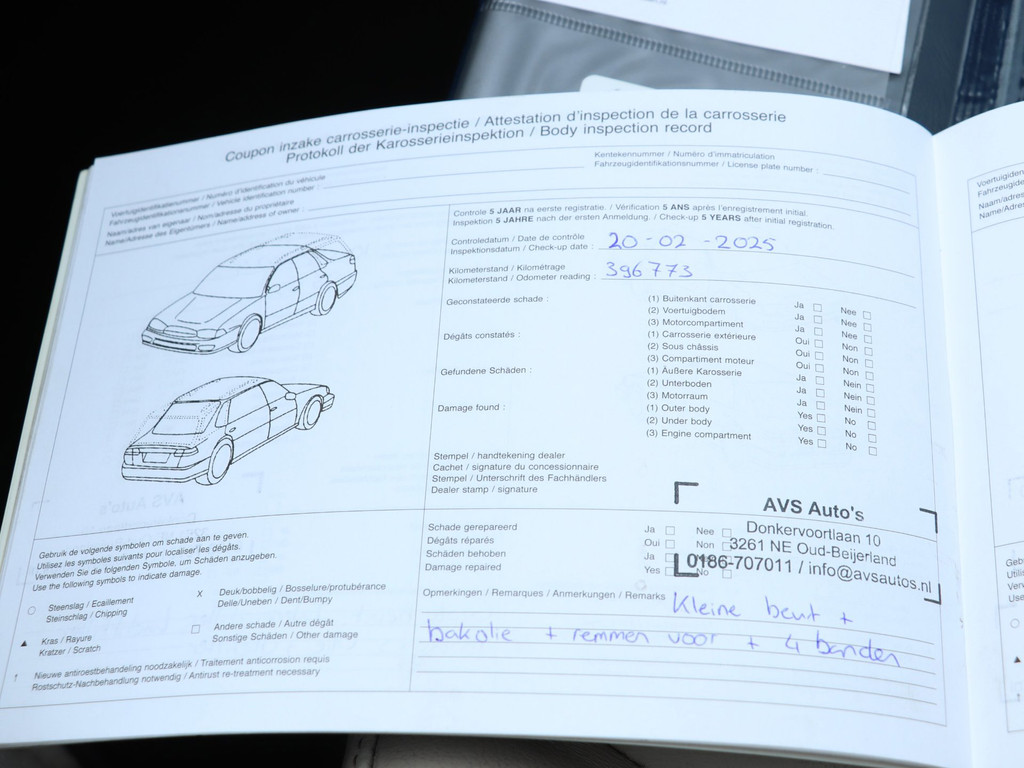 Coupon inzake carrosserie-inspectie / Attestation d'inspection de la carrosserie
Protokoll der Karosserieinspektion / Body inspection record
Voertuigidentifikatienummer / Numéro d'identification du véhicule
Fahrzeugidentifikationsnummer / Vehicle identification number :
Naam/adres van eigenaar / Nom/adresse du propriétaire
Name/Adresse des Eigentümers / Name/address of owner :
Kentekennummer / Numéro d'immatriculation
Fahrzeugidentifikationsnummer / License plate number :
Controle 5 JAAR na eerste registratie. / Vérification 5 ANS après l'enregistrement initial.
Inspektion 5 JAHRE nach der ersten Anmeldung. / Check-up 5 YEARS after initial registration.
Controledatum / Date de contrôle
Inspektionsdatum / Check-up date : 20-02-2025
Kilometerstand / Kilométrage
Kilometerstand / Odometer reading : 396773
Geconstateerde schade : (1) Buitenkant carrosserie Ja □ Nee □
(2) Voertuigbodem Ja □ Nee □
(3) Motorcompartiment Ja □ Nee □
Dégâts constatés : (1) Carrosserie extérieure Oui □ Non □
(2) Sous châssis Oui □ Non □
(3) Compartiment moteur Oui □ Non □
Gefundene Schäden : (1) Äußere Karosserie Ja □ Nein □
(2) Unterboden Ja □ Nein □
(3) Motorraum Ja □ Nein □
Damage found : (1) Outer body Yes □ No □
(2) Under body Yes □ No □
(3) Engine compartment Yes □ No □
Stempel / handtekening dealer
Cachet / signature du concessionnaire
Stempel / Unterschrift des Fachhändlers
Dealer stamp / signature
AVS Auto's
Donkervoortlaan 10
3261 NE Oud-Beijerland
0186-707011 / info@avsautos.nl
Schade gerepareerd Ja □ Nee □
Dégâts réparés Oui □ Non □
Schäden behoben Ja □
Damage repaired Yes □ No □
Opmerkingen / Remarques / Anmerkungen / Remarks Kleine beurt +
bakolie + remmen voor + 4 banden
Gebruik de volgende symbolen om schade aan te geven.
Utilisez les symboles suivants pour localiser les dégâts.
Verwenden Sie die folgenden Symbole, um Schäden anzugeben.
Use the following symbols to indicate damage.
○ Steenslag / Ecaillement
Steinschlag / Chipping
X Deuk/bobbelig / Bosselure/protubérance
Delle/Uneben / Dent/Bumpy
▲ Kras / Rayure
Kratzer / Scratch
□ Andere schade / Autre dégât
Sonstige Schäden / Other damage
↑ Nieuwe antiroestbehandeling noodzakelijk / Traitement anticorrosion requis
Rostschutz-Nachbehandlung notwendig / Antirust re-treatment necessary